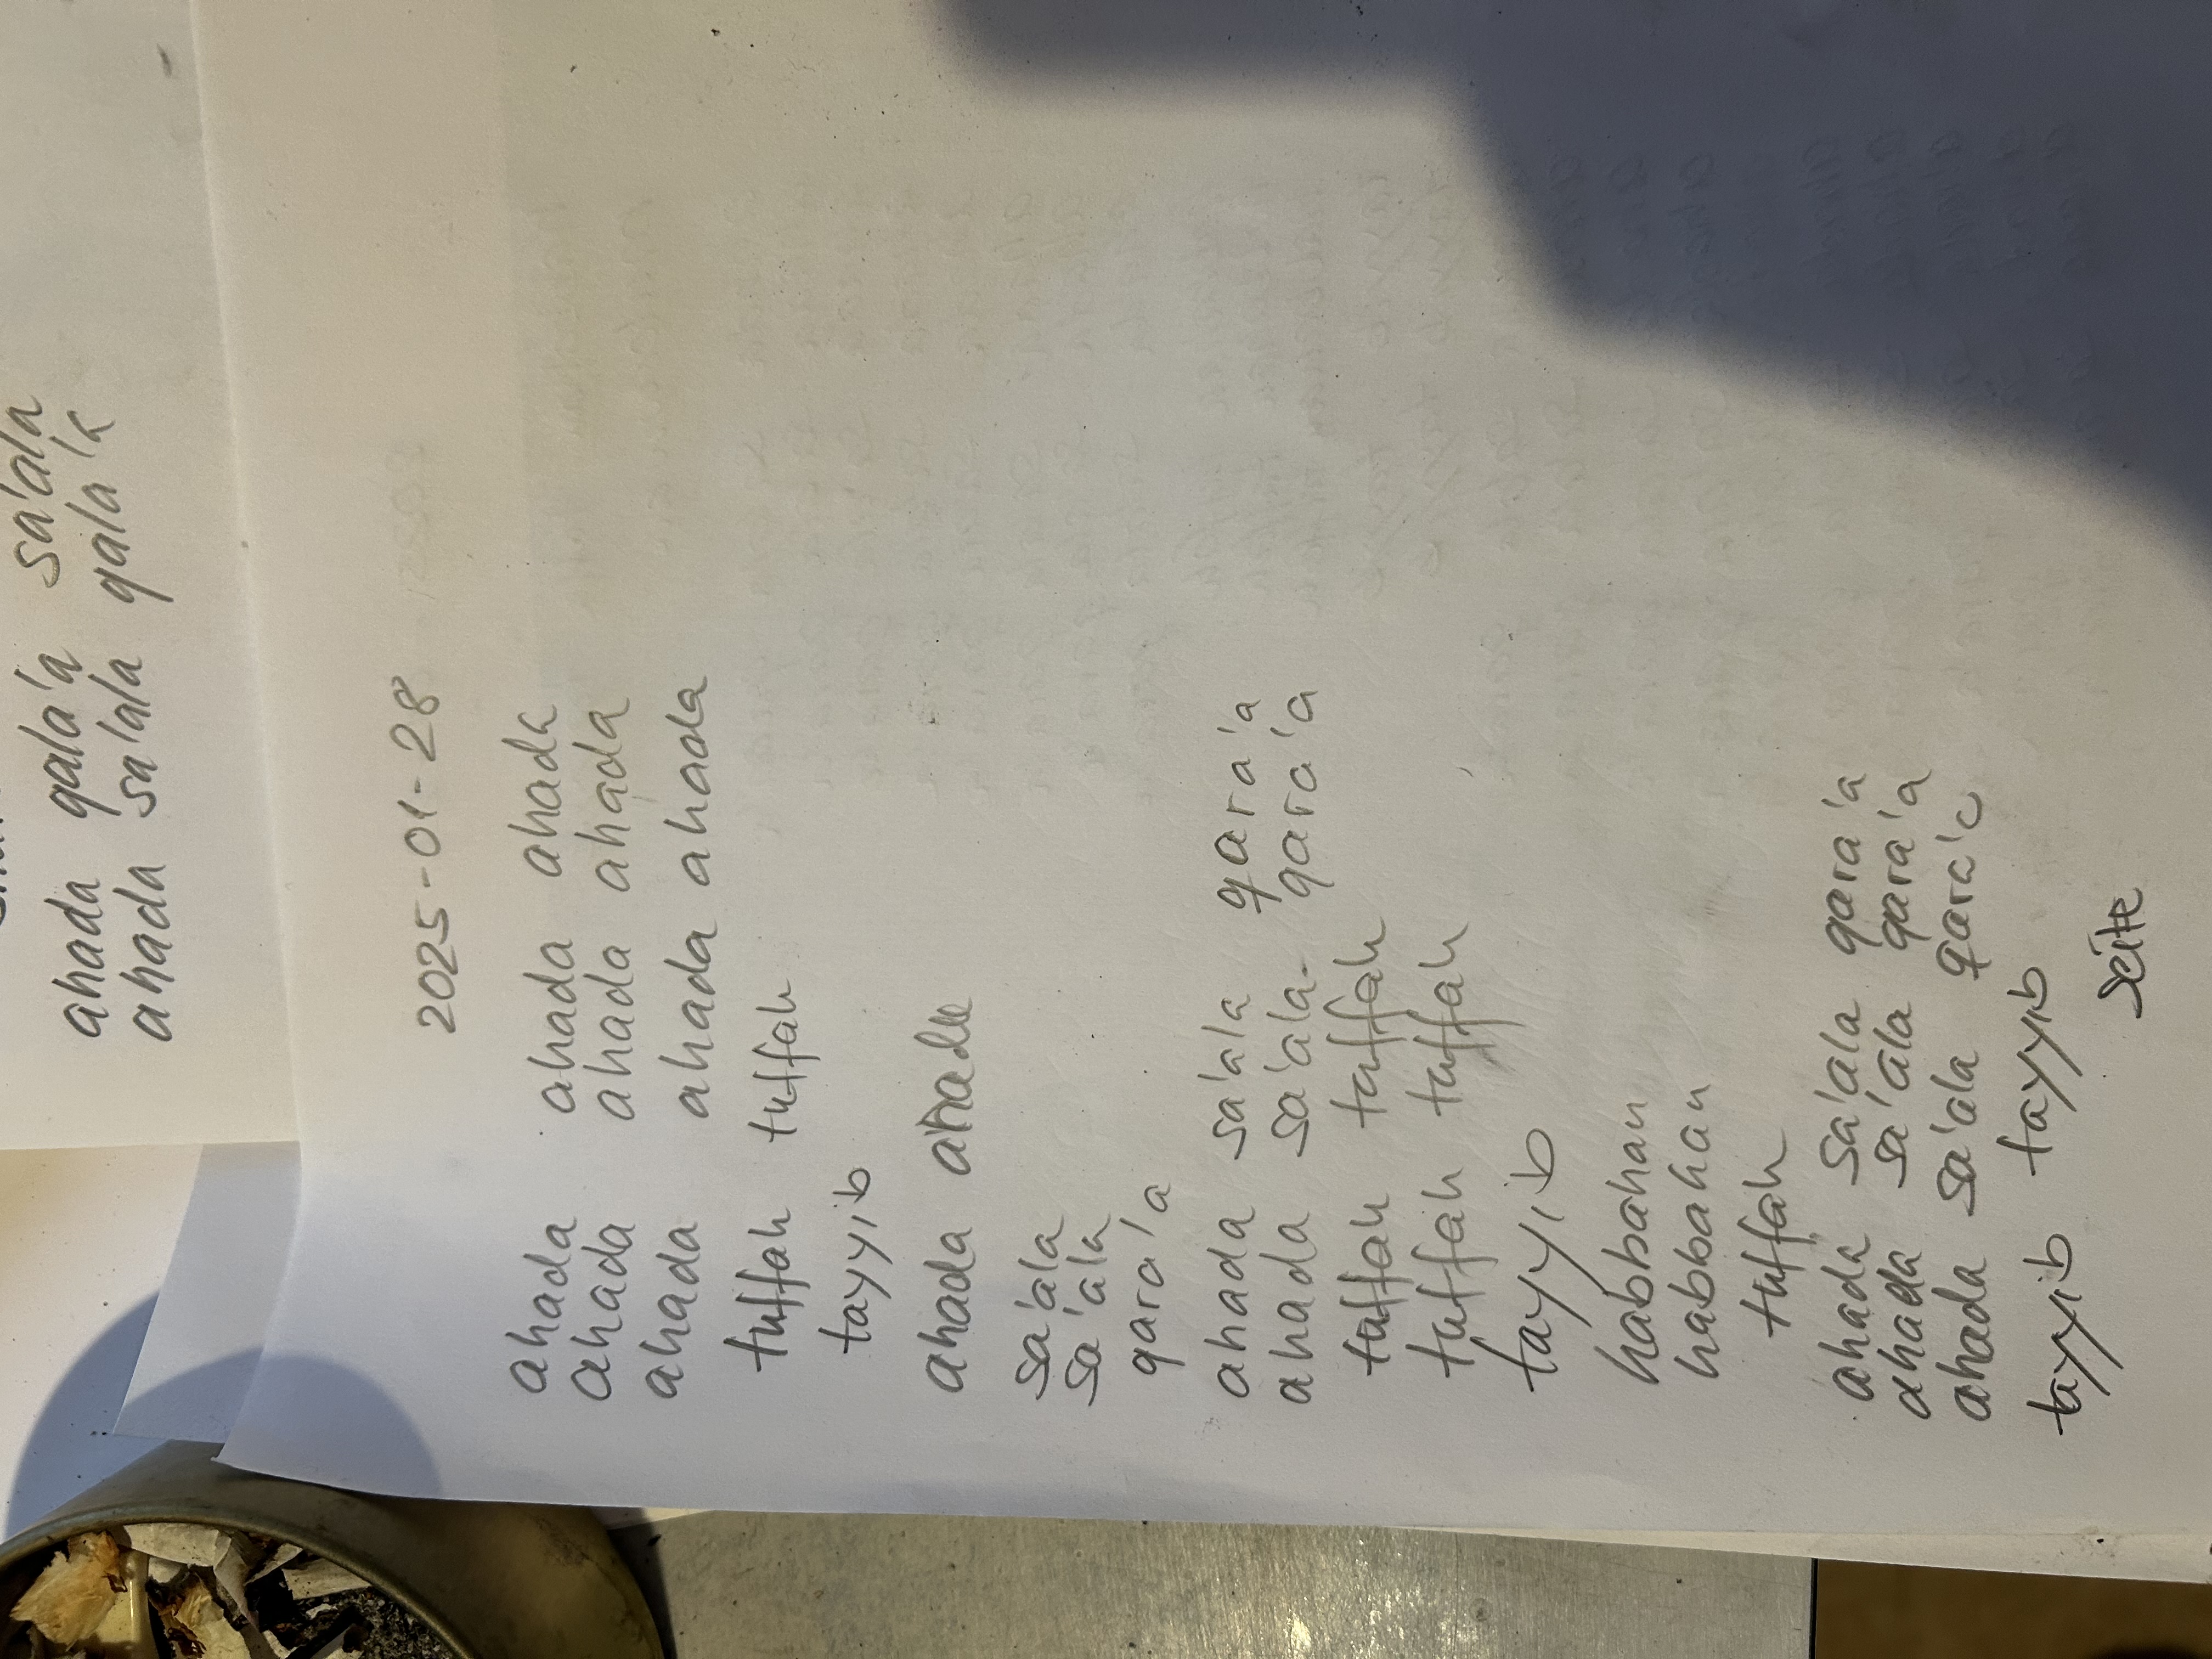 ahada qala'a sa'ala
ahada sa'ala qala'a
2025-01-28
ahada ahada ahada
ahada ahada ahada
ahada ahada ahada
tuffah tuffah
tayyib
ahada ahada
sa'ala
sa'ala
qara'a
ahada sa'ala qara'a
ahada sa'ala. qara'a
tuffah tuffah
tuffah tuffah
tayyib
habbahan
habbahan
tuffah
ahada sa'ala qara'a
ahada sa'ala qara'a
ahada sa'ala qara'a
tayyib tayyib
Seite